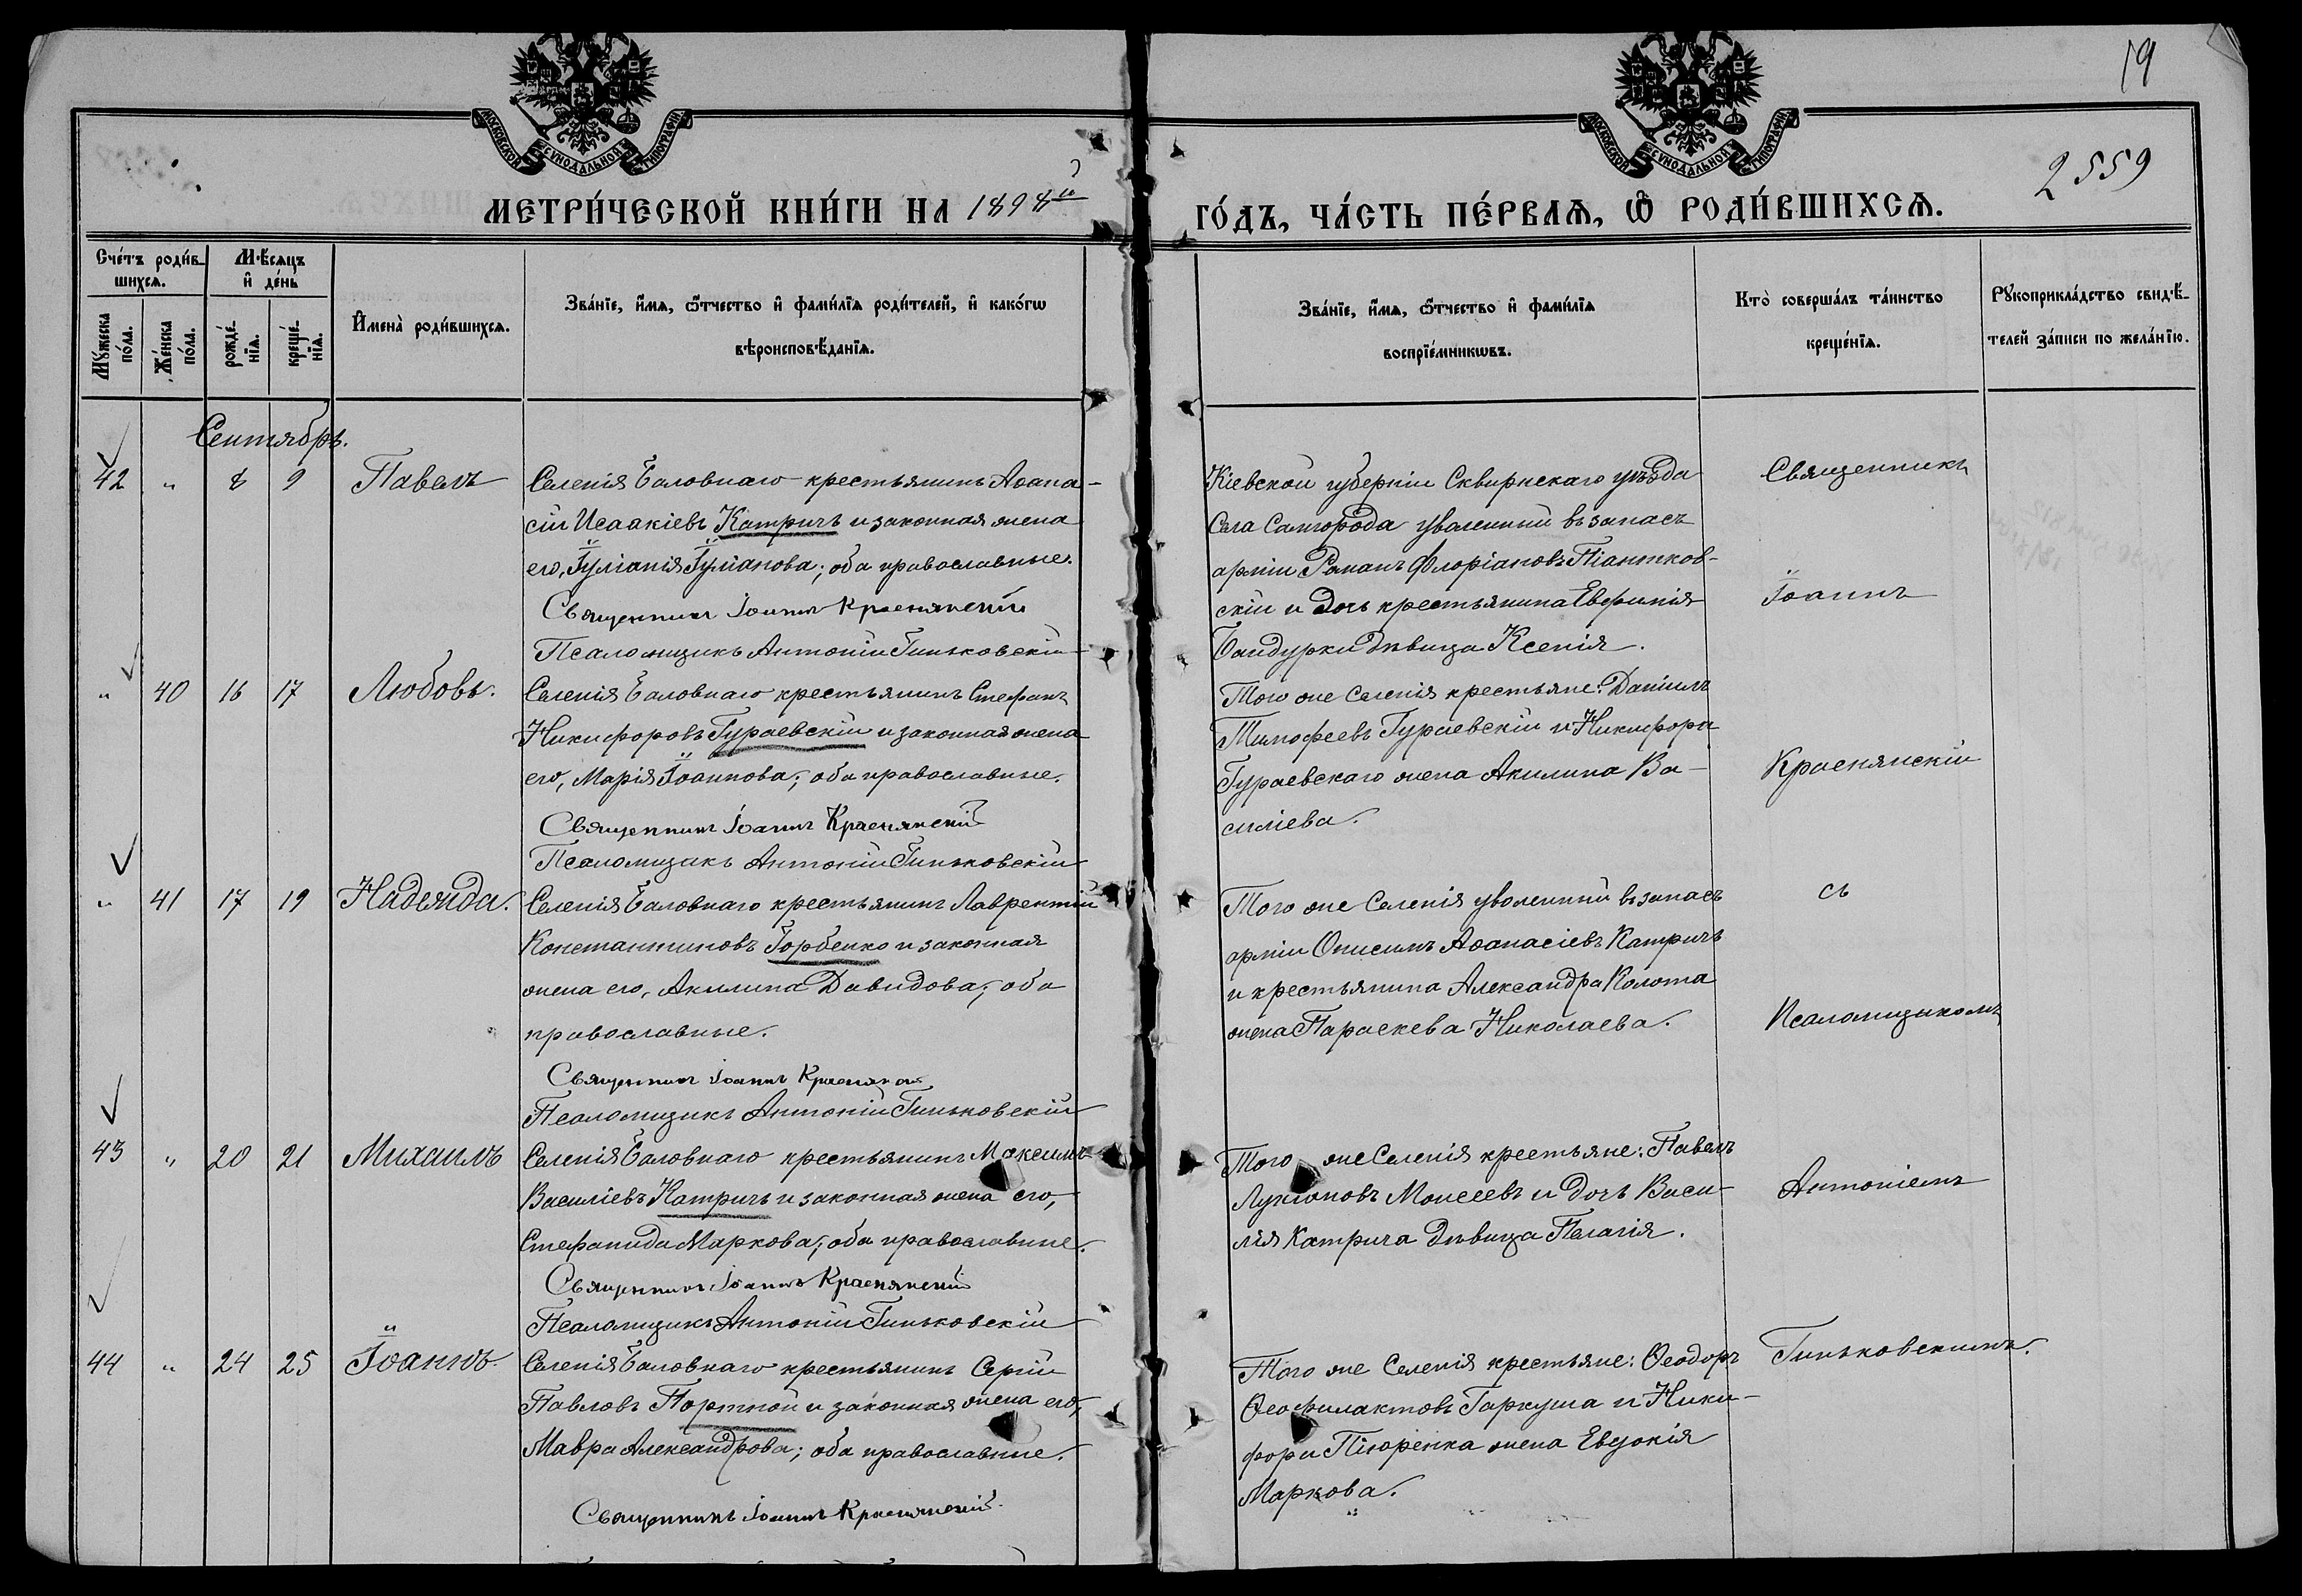 19
2559
МОСКОВСКОЙ СУНОДАЛЬНОЙ ТИПОГРАФІИ
МОСКОВСКОЙ СУНОДАЛЬНОЙ ТИПОГРАФІИ
МЕТРИ́ЧЕСКОЙ КНИ́ГИ НА 1898й
ГО́ДЪ, ЧА́СТЬ ПЕ́РВАѦ, Ѽ РОДИ́ВШИХСѦ.
Сче́тъ роди́в-
шихсѧ.
Мѣ́сѧцъ
и҆ де́нь
Мꙋ́жеска по́ла.
Же́нска по́ла.
рожде́-нїѧ.
креще́-нїѧ.
И҆мена̀ роди́вшихсѧ.
Зва́нїе, и҆́мѧ, ѻ҆́тчество и҆ фами́лїѧ роди́телей, и҆ како́гѡ
вѣроисповѣ́данїѧ.
Зва́нїе, и҆́мѧ, ѻ҆́тчество и҆ фами́лїѧ
воспрїе́мникѡвъ.
Кто̀ соверша́лъ та́инство
креще́нїѧ.
Рꙋкоприкла́дство свидѣ́-
телей за́писи по жела́нїю.
Сентябрь.
42 " 8 9 Павелъ
Селенія Баловнаго крестьянинъ Аѳана-
сій Исаакіевъ Катричъ и законная жена
его, Іуліанія Іуліанова; оба православные.
Священникъ Іоаннъ Краснянскій
Псаломщикъ Антоній Гиньковскій
Кіевской губерніи Сквирскаго уѣзда
Села Самгорода уволенный въ запасъ
арміи Романъ Флоріановъ Піантков-
скій и дочь крестьянина Евфимія
Бандурки дѣвица Ксенія.
Священникъ
Іоаннъ
" 40 16 17 Любовь.
Селенія Баловнаго крестьянинъ Стефанъ
Никифоровъ Гураевскій и законная жена
его, Марія Іоаннова; оба православные.
Священникъ Іоаннъ Краснянскій
Псаломщикъ Антоній Гиньковскій
Того же Селенія крестьяне: Даніилъ
Тимофеевъ Гураевскій и Никифора
Гураевскаго жена Акилина Ва-
силіева.
Краснянскій
" 41 17 19 Надежда.
Селенія Баловнаго крестьянинъ Лаврентій
Константиновъ Горбенко и законная
жена его, Акилина Давидова; оба
православные.
Священникъ Іоаннъ
Псаломщикъ Антоній Гиньковскій
Того же Селенія уволенный въ запасъ
арміи Онисимъ Аѳанасіевъ Катричъ
и крестьянина Александра Колота
жена Параскева Николаева.
съ
Псаломщикомъ
43 " 20 21 Михаилъ
Селенія Баловнаго крестьянинъ Максимъ
Василіевъ Катричъ и законная жена его,
Стефанида Маркова; оба православные.
Священникъ Іоаннъ Краснянскій
Псаломщикъ Антоній Гиньковскій
Того же Селенія крестьяне: Павелъ
Лукіановъ Моисеевъ и дочь Васи-
лія Катрича дѣвица Пелагія.
Антоніемъ
44 " 24 25 Іоаннъ.
Селенія Баловнаго крестьянинъ Сергій
Павловъ Портной и законная жена его,
Мавра Александрова; оба православные.
Священникъ Іоаннъ Краснянскій
Того же Селенія крестьяне: Ѳеодоръ
Ѳеофилактовъ Гаркуша и Ники-
фора жена Евдокія
Маркова.
Гиньковскимъ.